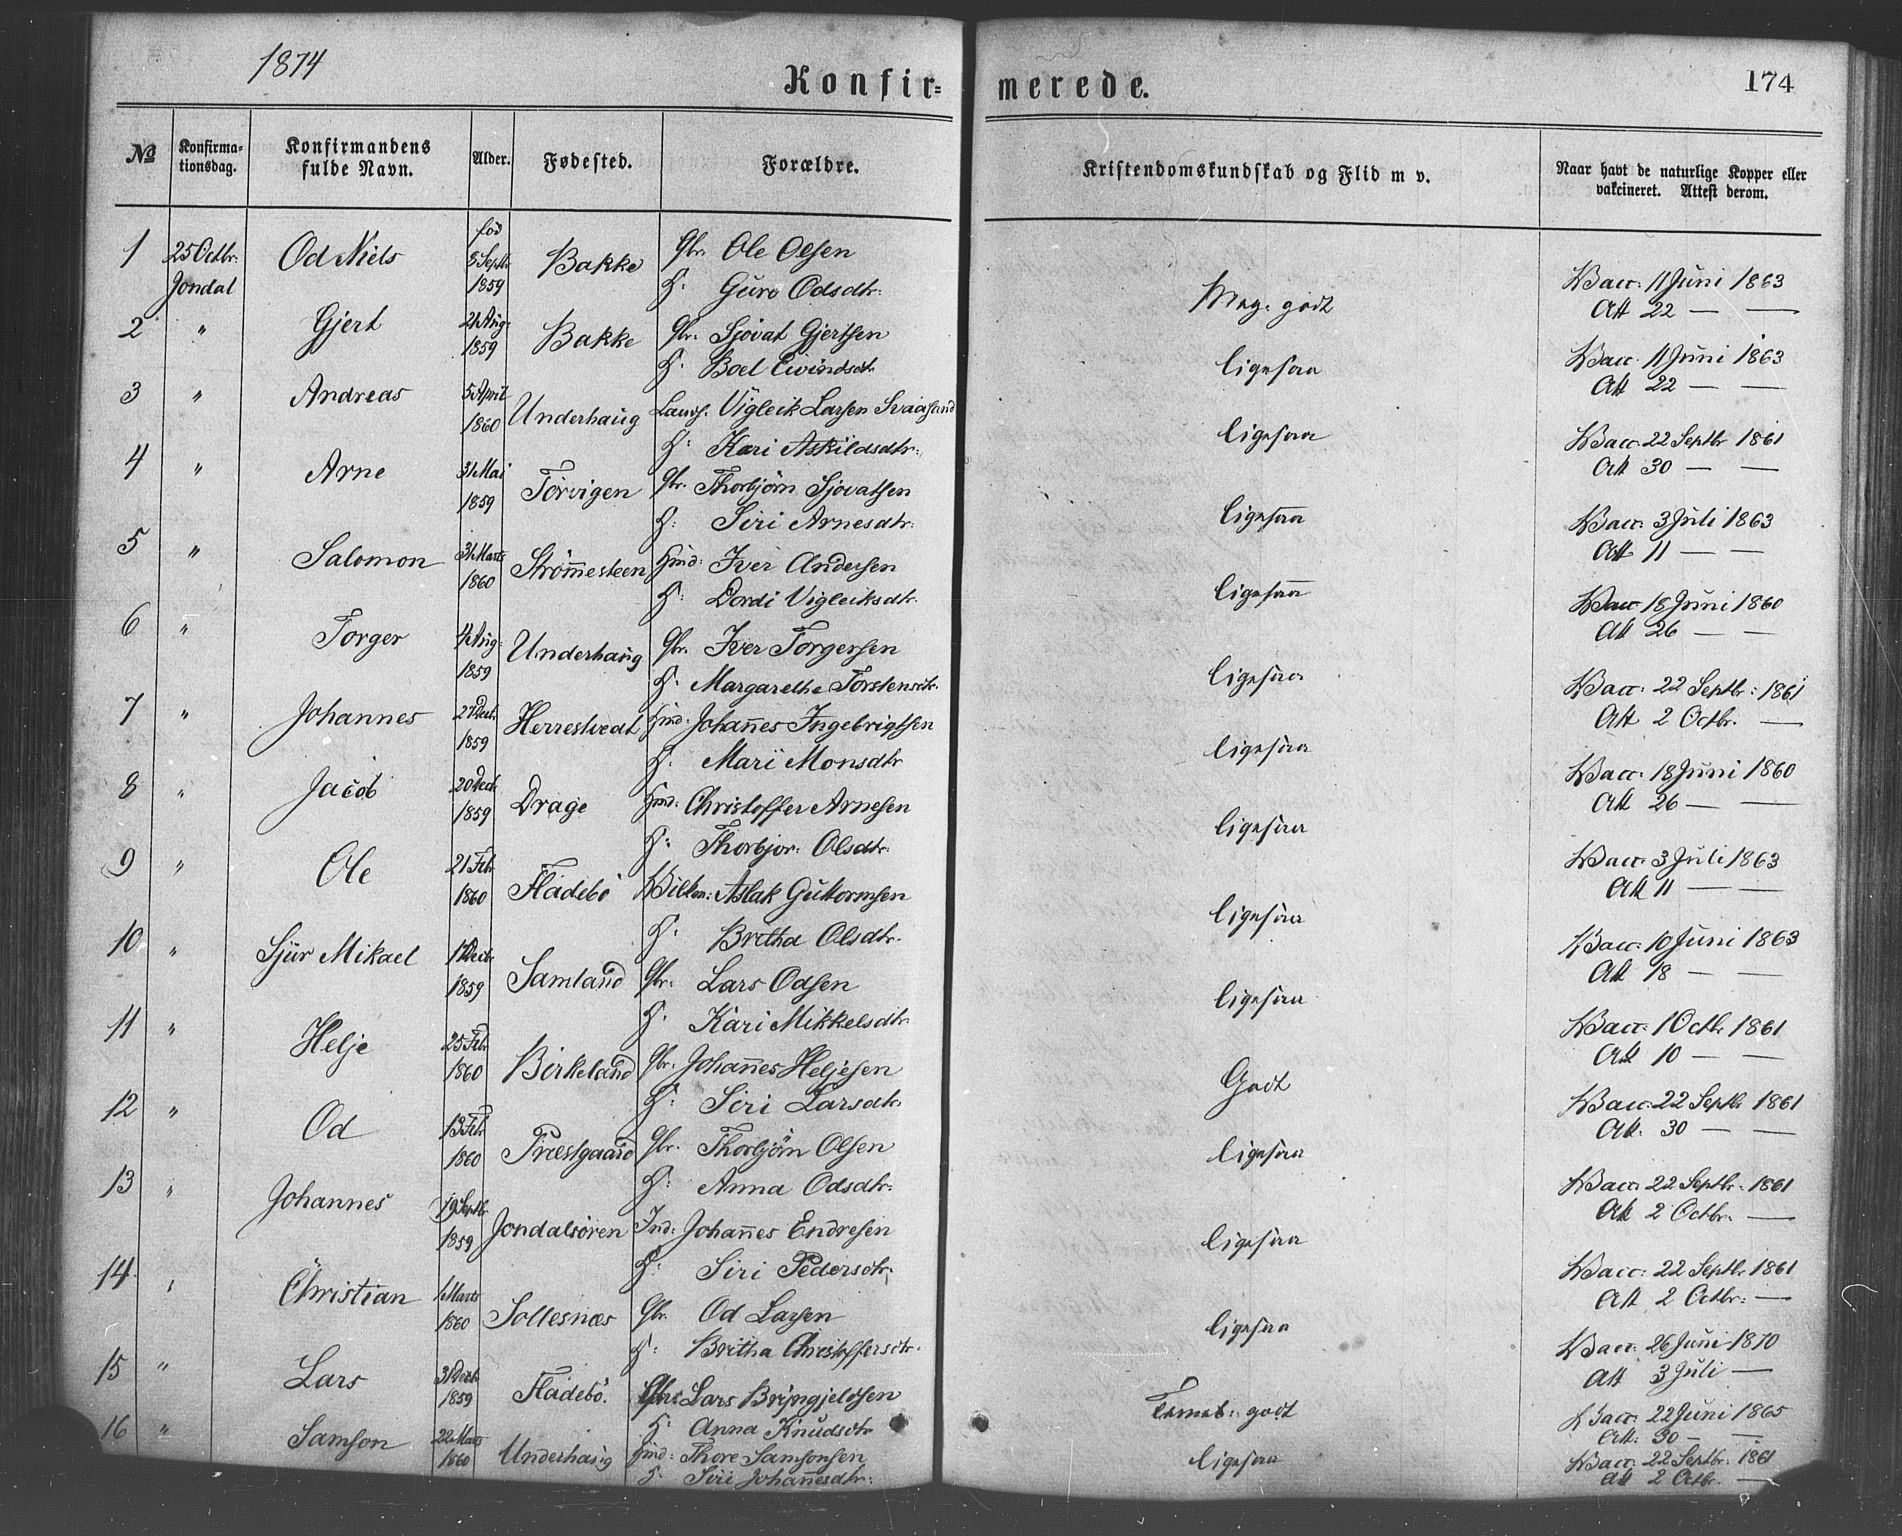 1874
Konfir=
merede.
174
No
Konfirma-
tionsdag.
Konfirmandens
fulde Navn.
Alder.
Fødested.
Forældre.
Kristendomskundskab og Flid m v.
Naar havt de naturlige Kopper eller
vakcineret. Attest derom.
1 25 Octbr: Jondal Od Niels fød 8 Septb 1859 Bakke Gbr. Ole Olsen
H: Guro Odsdtr: Meg. godt Vacc: 11 Juni 1863
Att 22 — —
2 " Gjert 24 Aug: 1859 Bakke Gbr. Sjovat Gjertsen
H: Boel Eivindsdtr ligesaa Vacc: 11 Juni 1863
Att 22 — —
3 " Andreas 5 April 1860 Underhaug Vigleik Larsen Svaasand
H: Kari Askildsdtr: ligesaa Vacc: 22 Septbr 1861
Att 30 — —
4 " Arne 31 Mai 1859 Torvigen Gbr. Thorbjörn Sjovatsen
H: Siri Arnesdtr: ligesaa Vacc: 3 Juli 1863
Att 11 — —
5 " Salomon 31 Marts 1860 Strömmesteen Hmd: Iver Andersen
H: Dordi Vigleiksdtr. ligesaa Vacc 18 Juni 1860
Att 26 — —
6 " Torger 4 Aug: 1859 Underhaug Gbr. Iver Torgersen
H: Margarethe Torstensdtr. ligesaa Vacc: 22 Septbr: 1861
Att 2 Octbr. —
7 " Johannes 27 Decb. 1859 Herrestvedt Hmd: Johannes Ingebrigtsen
H: Mari Monsdtr ligesaa Vacc: 18 Juni 1860
Att 26 — —
8 " Jacob 20 Decb. 1859 Drage Hmd: Christoffer Arnesen
H: Thorbjor: Olsdtr: ligesaa Vacc: 3 Juli 1863
Att 11 — —
9 " Ole 21 Febr 1860 Fladebö Aslak Guttormsen
H: Britha Olsdtr. ligesaa Vacc: 10 Juni 1863
Att 18 — —
10 " Sjur Mikael Decbr 1859 Samland Gbr: Lars Odsen
H: Kari Mikkelsdtr. ligesaa Vacc: 1 Octbr 1861
Att 10 — —
11 " Helje 25 Febr 1860 Birkeland Gbr. Johannes Heljesen
H: Siri Larsdtr. Godt Vacc: 22 Septbr 1861
Att. 30 — —
12 " Od 13 Febr 1860 Præstgaard Gbr. Thorbjörn Olsen
H: Anna Odsdtr: ligesaa Vacc: 22 Septbr. 1861
Att 2 Octbr. —
13 " Johannes 19 Septbr 1859 Jondalsören Ind: Johannes Endresen
H: Siri Pedersdtr. ligesaa Vacc: 22 Septbr 1861
Att 2 Octbr: —
14 " Christian 1 Marts 1860 Sollesnæs Gbr. Od Larsen
H: Britha Christoffersdtr. ligesaa Vacc: 26 Juni 1870
Att 3 Juli —
15 " Lars 31 Decb 1859 Fladebö. Gbr: Lars Bryngjeldsen
H: Anna Knudsdtr Temml: godt Vacc: 22 Juni 1865
Att: 30 — —
16 " Samson 22 Marts 1860 Underhaug Hmd: Thore Samsonsen
H: Siri Johannesdtr: ligesaa Vacc: 22 Septbr: 1861
Att 2 Octbr. —